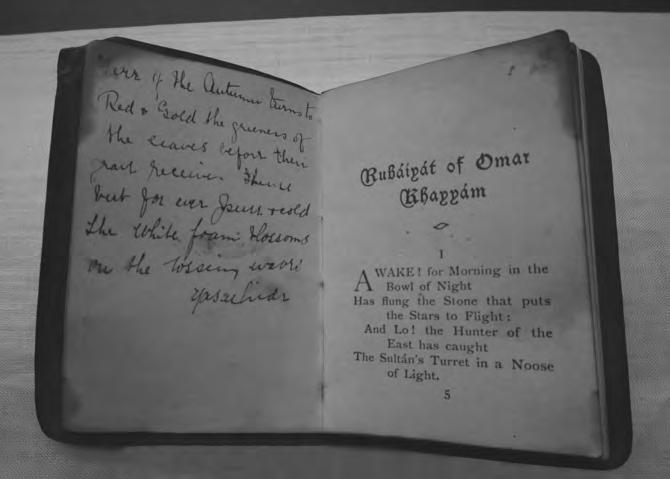 of the Autumn turns to
Red & Gold the greeness of
the leaves before their
receives them
but for ever
the white foam blossoms
on the tossing waves
Rubáiyát of Omar
Khayyám
I
AWAKE! for Morning in the
Bowl of Night
Has flung the Stone that puts
the Stars to Flight:
And Lo! the Hunter of the
East has caught
The Sultán's Turret in a Noose
of Light.
5